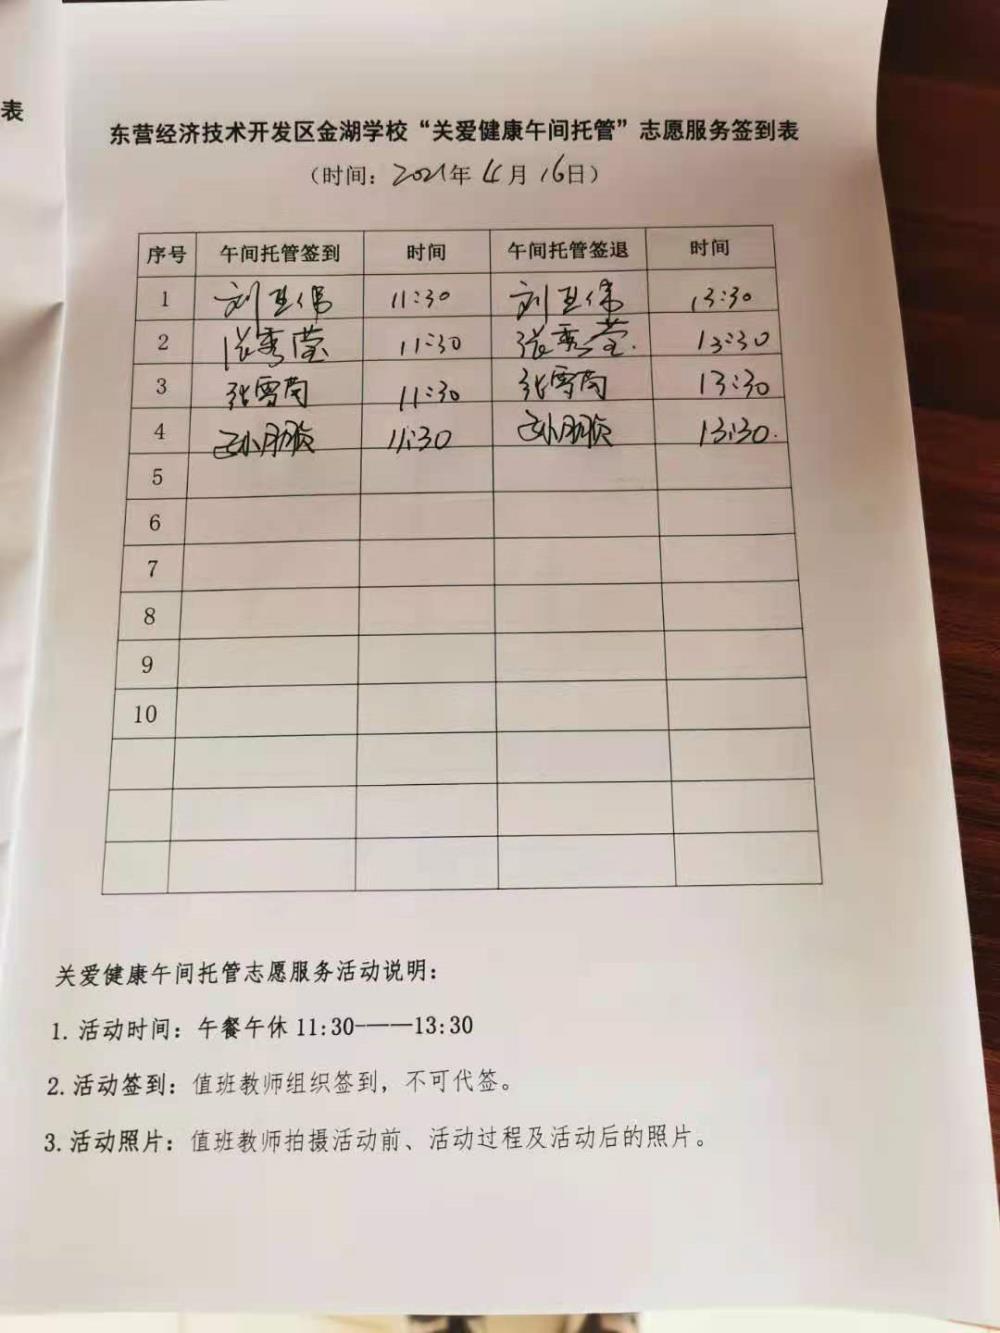 表
东营经济技术开发区金湖学校“关爱健康午间托管”志愿服务签到表
（时间：2021年 4月 16日）
序号 午间托管签到 时间 午间托管签退 时间
1 刘卫伟 11:30 刘卫伟 13:30
2 张秀莹 11:30 张秀莹. 13:30
3 张雪菊 11:30 张雪菊 13:30
4 11:30 13:30.
5
6
7
8
9
10
关爱健康午间托管志愿服务活动说明：
1. 活动时间：午餐午休 11:30-——13:30
2. 活动签到：值班教师组织签到，不可代签。
3. 活动照片：值班教师拍摄活动前、活动过程及活动后的照片。